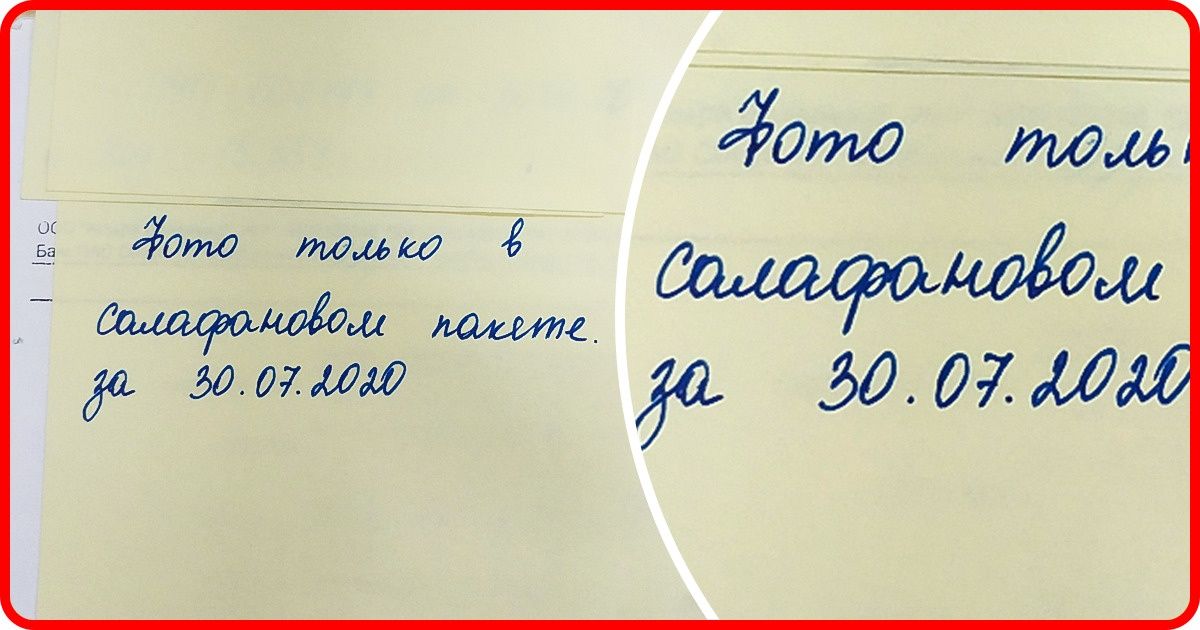 Ба
Фото только в
салафановом пакете.
за 30.07.2020
Фото толь
салафановом
за 30.07.2020